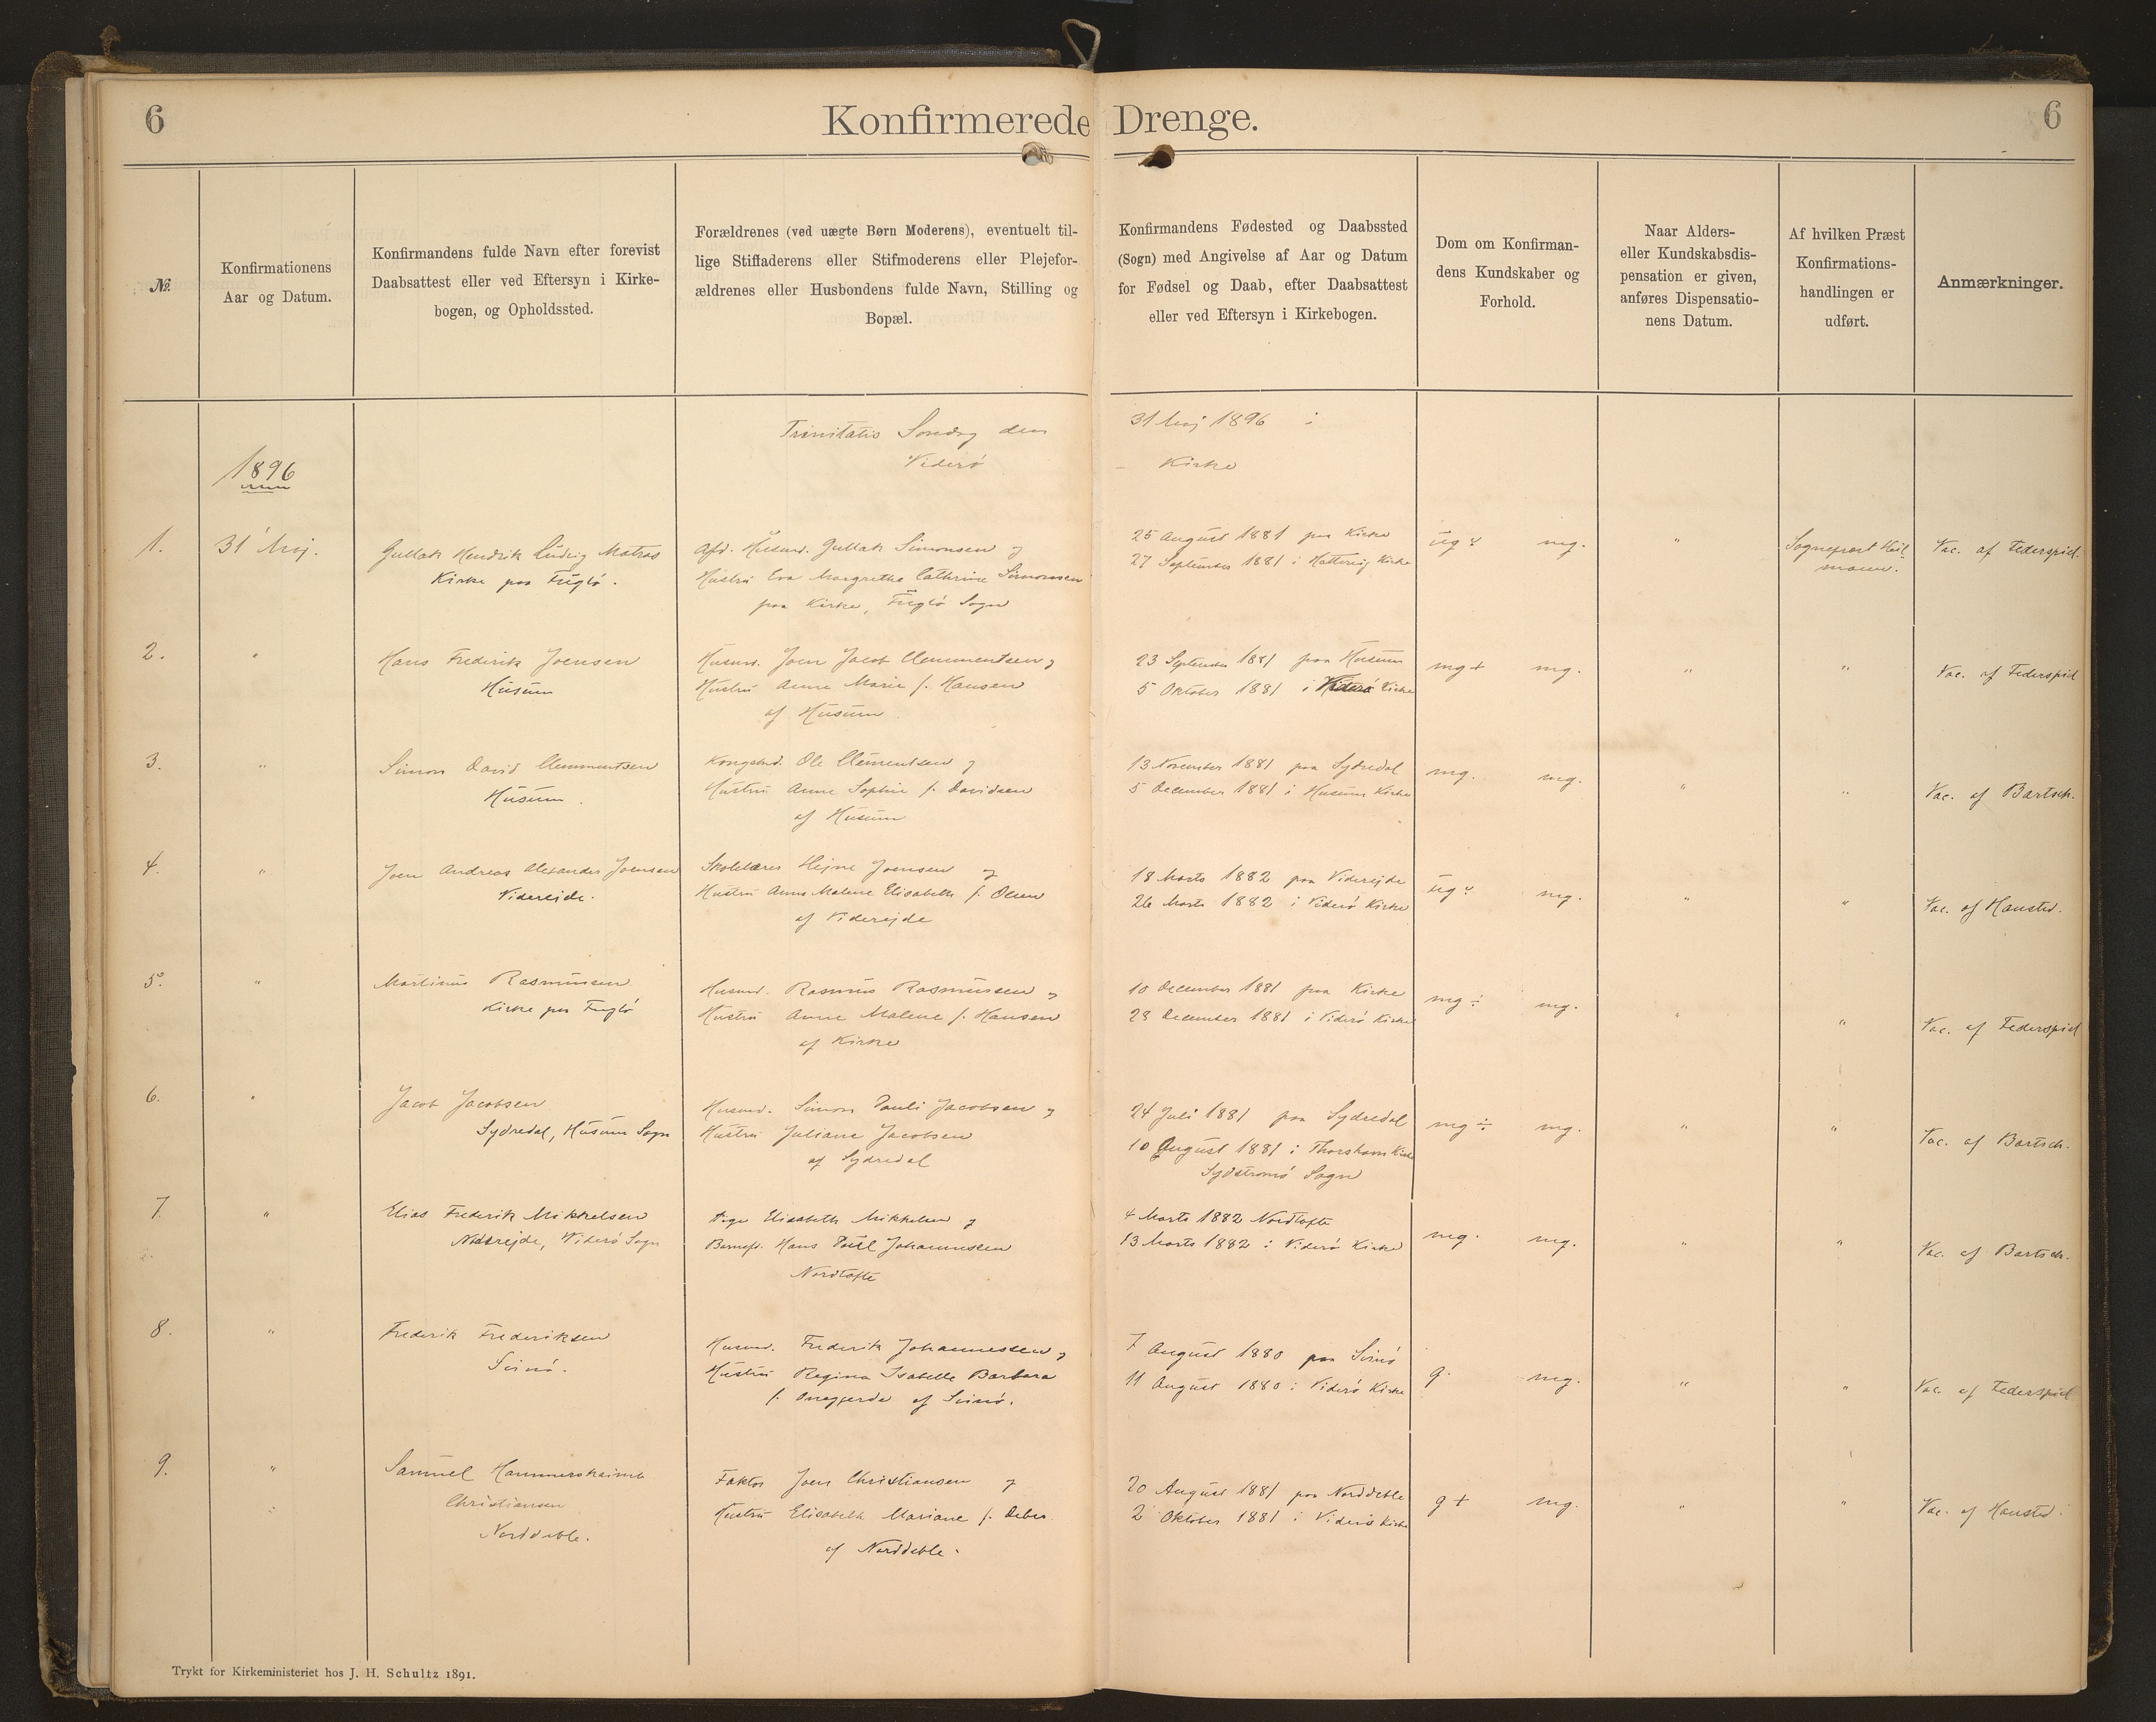 6
Konfirmerede Drenge.
6
No.
Konfirmationens
Aar og Datum.
Konfirmandens fulde Navn efter forevist
Daabsattest eller ved Eftersyn i Kirke-
bogen, og Opholdssted.
Forældrenes (ved uægte Børn Moderens), eventuelt til-
lige Stiffaderens eller Stifmoderens eller Plejefor-
ældrenes eller Husbondens fulde Navn, Stilling og
Bopæl.
Konfirmandens Fødested og Daabssted
(Sogn) med Angivelse af Aar og Datum
for Fødsel og Daab, efter Daabsattest
eller ved Eftersyn i Kirkebogen.
Dom om Konfirman-
dens Kundskaber og
Forhold.
Naar Alders-
eller Kundskabsdis-
pensation er given,
anføres Dispensatio-
nens Datum.
Af hvilken Præst
Konfirmations-
handlingen er
udført.
Anmærkninger.
Trinitatis Søndag den 31 Maj 1896 i
Viderø Kirke
1896
1.
31' Maj.
Gullak Hendrik Ludvig Matras
Kirke paa Fuglø.
Afd. Husmd. Gullak Simonsen og
Hustru Eva Margrethe Cathrine Simonsen
paa Kirke, Fuglø Sogn
25 August 1881 paa Kirke
27 September 1881 i Hattervig Kirke
ug
mg.
"
Sognepræst
Vac. af Federspiel.
2.
"
Hans Frederik Joensen
Husum
Husmd. Joen Jacob Clemmentsen og
Hustru Anne Marie f. Hansen
af Husum
23 September 1881 paa Husum
5 Oktober 1881 i Viderø Kirke
mg+
mg.
"
"
Vac. af Federspiel
3.
"
Simon David Clemmentsen
Husum.
Kongsbd. Ole Clementsen og
Hustru Anne Sophie f. Davidsen
af Husum
13 November 1881 paa Sydredal
5 December 1881 i Husum Kirke
mg.
mg.
"
"
Vac. af Bartsch.
4.
"
Joen Andreas Alexander Joensen
Viderejde.
Skolelærer Hejne Joensen og
Hustru Anne Malene Elisabeth f. Olsen
af Viderejde
18 Marts 1882 paa Viderejde
26 Marts 1882 i Viderø Kirke
ug
mg.
"
"
Vac. af Hansted.
5.
"
Martinus Rasmussen
Kirke paa Fuglø
Husmd. Rasmus Rasmussen og
Hustru Anne Malene f. Hansen
af Kirke
10 December 1881 paa Kirke
28 December 1881 i Viderø Kirke
mg ÷
mg.
"
"
Vac. af Federspiel
6.
"
Jacob Jacobsen
Sydredal, Husum Sogn
Husmd. Simon Pauli Jacobsen og
Hustru Juliane Jacobsen
af Sydredal
24 Juli 1881 paa Sydredal
10 August 1881 i Thorshavn Kirke
Sydstrømø Sogn
mg ÷
mg.
"
"
Vac. af Bartsch.
7.
"
Elias Frederik Mikkelsen
Viderø Sogn
Pige Elisabeth Mikkelsen og
Barnefd. Hans Poul Johannessen
Nordtofte
4 Marts 1882 Nordtofte
13 Marts 1882 i Viderø Kirke
mg.
mg.
"
"
Vac. af Bartsch.
8.
"
Frederik Frederiksen
Svinø.
Husmd. Frederik Johannessen og
Hustru Regina Isabelle Barbara
f. af Svinø.
7 August 1880 paa Svinø
11 August 1880 i Viderø Kirke
g.
mg.
"
"
Vac. af Federspiel
9.
"
Samuel Hammershaimb
Christiansen
Norddeble.
Faktor Joen Christiansen og
Hustru Elisabeth Mariane f. Debes
af Norddeble.
20 August 1881 paa Norddeble
2 Oktober 1881 i Viderø Kirke
g +
mg.
"
"
Vac. af Hansted.
Trykt for Kirkeministeriet hos J. H. Schultz 1891.